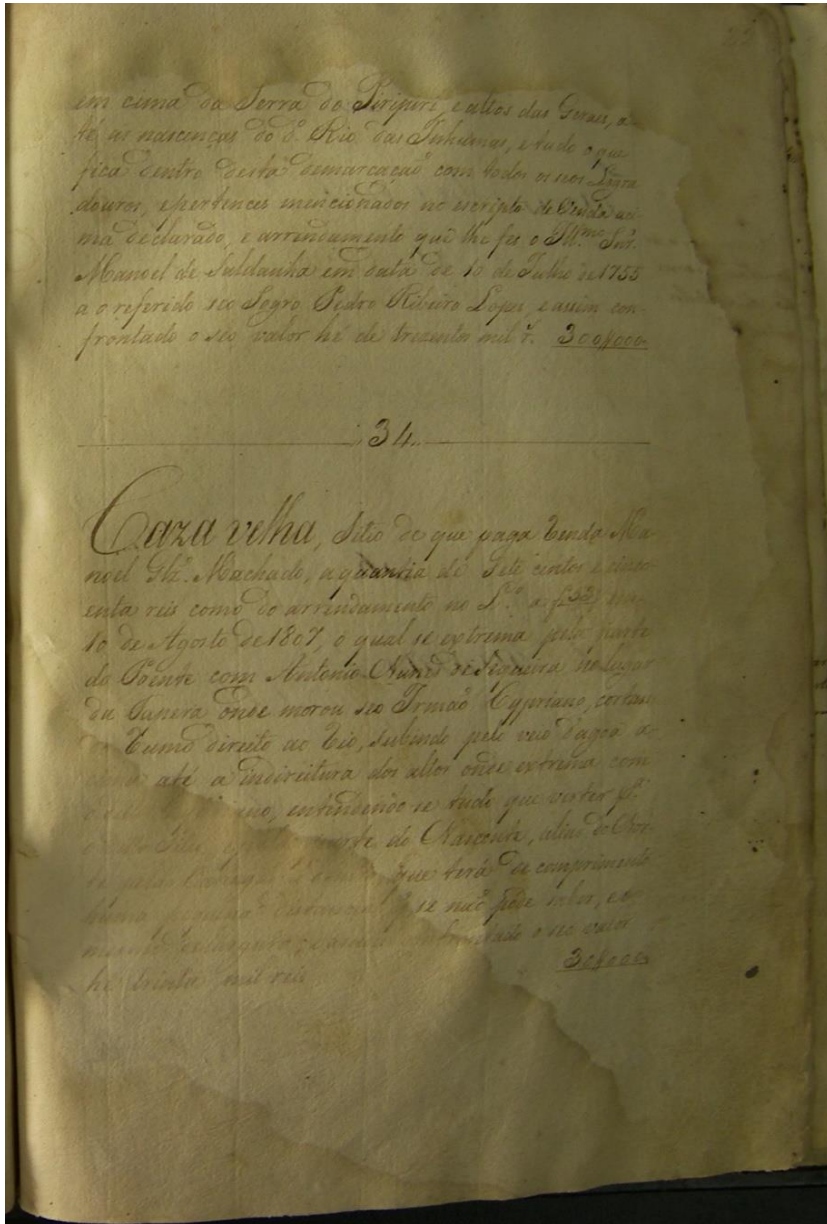 em cima da Serra do Piripiri, e altos das Geraes, a-
té as nascenças do d.º Rio das Inhumas, e tudo o que
fica dentro desta demarcaçaõ com todos os seos Logra
douros, e pertences mencionados no escripto de Venda aci-
ma declarado, e arrendamento que lhe fes o Ill.mo Snr.
Manoel de Saldanha em data de 10 de Julho de 1755
a o referido seo Sogro Pedro Ribeiro Lopes, e assim con-
frontado o seo valor hé de trezentos mil r.s 300$000
34.
Caza velha, Sitio de que paga Renda Ma
noel Glz.' Machado, a quantia de Sete centos e cinco
enta reis como do arrendamento no L.º a f 33
10 de Agosto de 1807, o qual se extrema pela parte
do Poente com Antonio Nunes de Siqueira no lugar
da Tapera onde morou seo Irmaõ Cypriano, cortan
Rumo direito ao Rio, subindo pelo veio d'agoa a
cima até a indireitura dos altos onde extrema com
entendendo se tudo que verter p.ª
parte do Nascente, alias do Nor
te pelas que terá de comprimento
huma se naõ pode saber, e o
mesmo de largura, e assim confrontado o seo valor
hé trinta mil reis 30$000